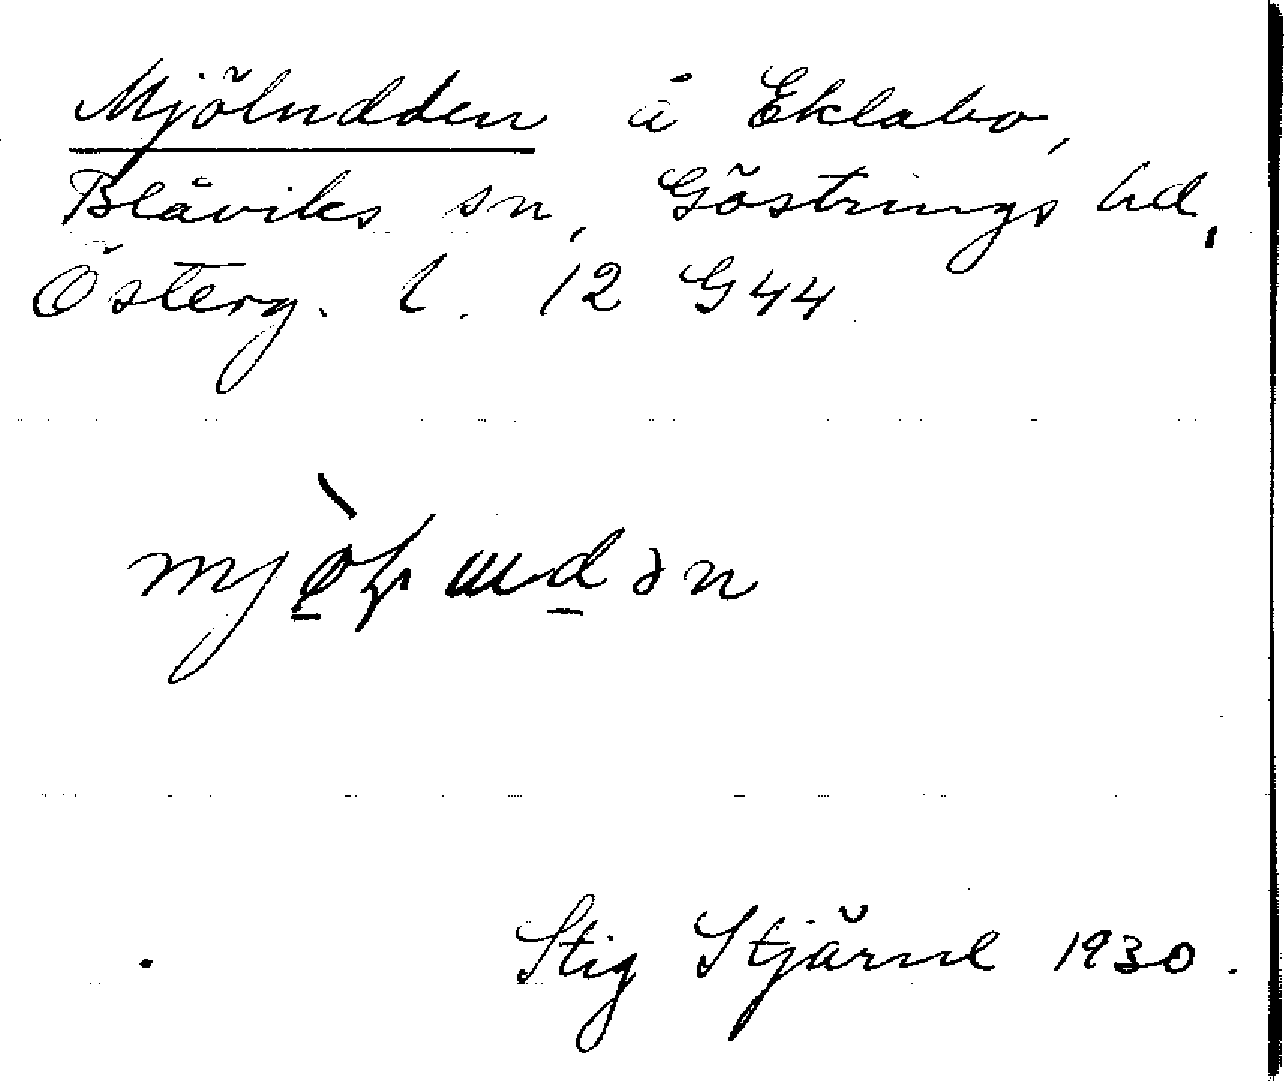 Mjöludden å Eklabo,
Blåviks sn, Göstrings hd,
Österg. l. 12 G 44
Stig Stjärne 1930.